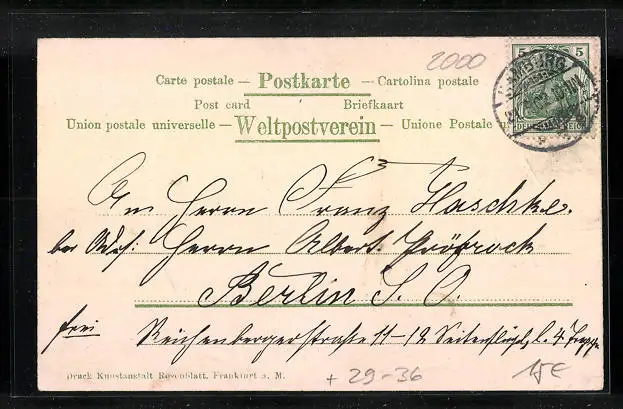 2000
5 5
HAMBURG
Carte postale — Postkarte — Cartolina postale
Post card Briefkaart
Union postale universelle — Weltpostverein — Unione Postale
An Herrn Franz Haschke.
bei Herrn Albert Pröfrock
Berlin S. O
frei Reichenbergerstraße 11-12 Seitenflügel, l. 4 Treppe
Druck Kunstanstalt Rosenblatt, Frankfurt a. M.
+ 29-36 15€